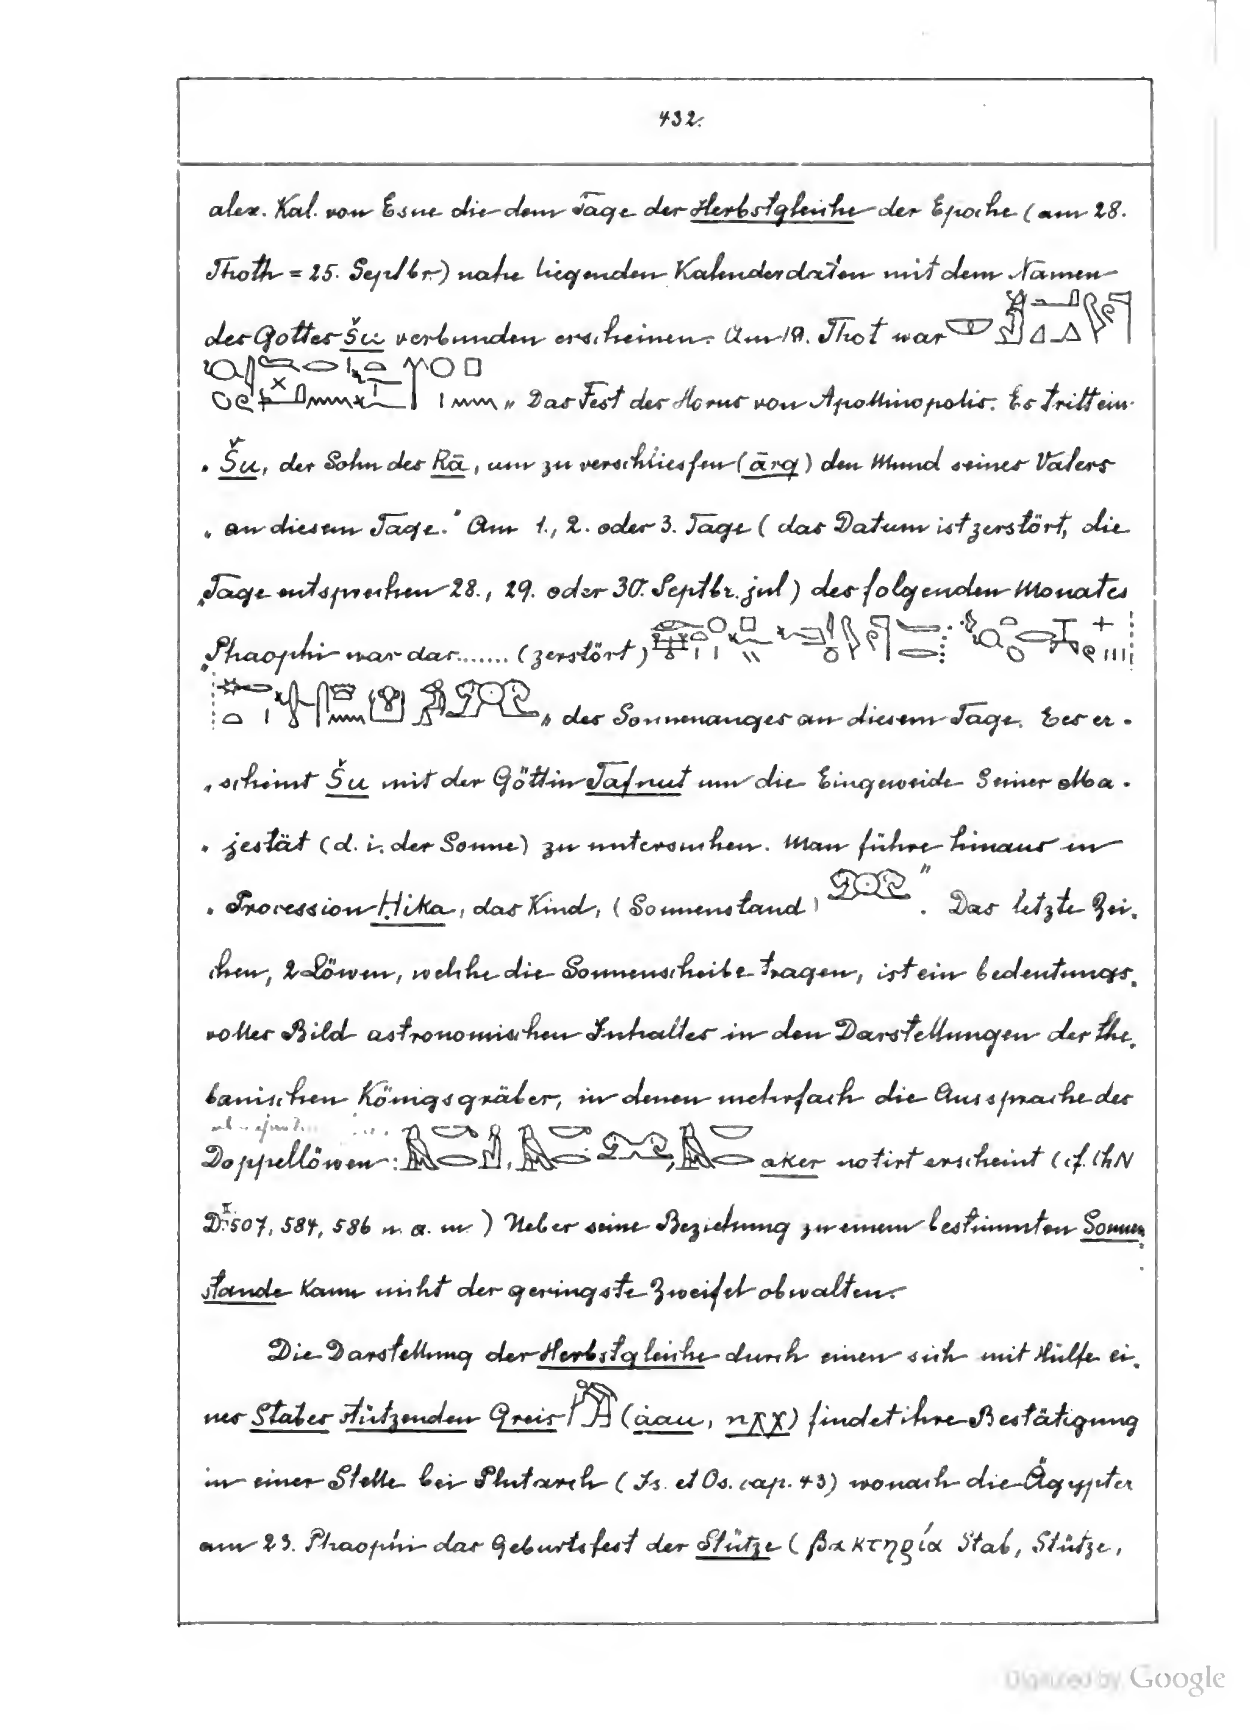 432.
alex. Kal. von Esne die dem Tage der Herbstgleiche der Epoche (am 28.
Thoth = 25. Septbr.) nahe liegenden Kalenderdaten mit dem Namen
des Gottes Šu verbunden erscheinen. Am 19. Thot war
„ Das Fest des Horus von Apollinopolis. Es tritt ein
„ Šu, der Sohn des Rā, um zu verschliessen (ārq) den Mund seines Vaters
„ an diesem Tage." Am 1., 2. oder 3. Tage ( das Datum ist zerstört, die
„Tage entsprechen 28., 29. oder 30. Septbr. jul) des folgenden Monates
„Phaophi war das....... (zerstört)
„ des Sonnenauges an diesem Tage. Es er-
„ scheint Šu mit der Göttin Tafnut um die Eingeweide Seiner Ma-
„ jestät (d. i. der Sonne) zu untersuchen. Man führe hinaus in
„ Procession Ḥika, das Kind, (Sonnenstand) ". Das letzte Zei-
chen, 2 Löwen, welche die Sonnenscheibe tragen, ist ein bedeutungs-
volles Bild astronomischen Inhaltes in den Darstellungen der the-
banischen Königsgräber, in denen mehrfach die Aussprache des
Doppellöwen: , , aker notirt erscheint (cf. ChN
D. II 507, 584, 586 u. a. m. ) Ueber seine Beziehung zu einem bestimmten Sonnen-
stande kann nicht der geringste Zweifel obwalten.
Die Darstellung der Herbstgleiche durch einen sich mit Hülfe ei-
nes Stabes stützenden Greis (áau, ) findet ihre Bestätigung
in einer Stelle bei Plutarch ( Is. et Os. cap. 43) wonach die Ägypter
am 23. Phaophi das Geburtsfest der Stütze ( βακτηρία Stab, Stütze,
Digitized by Google